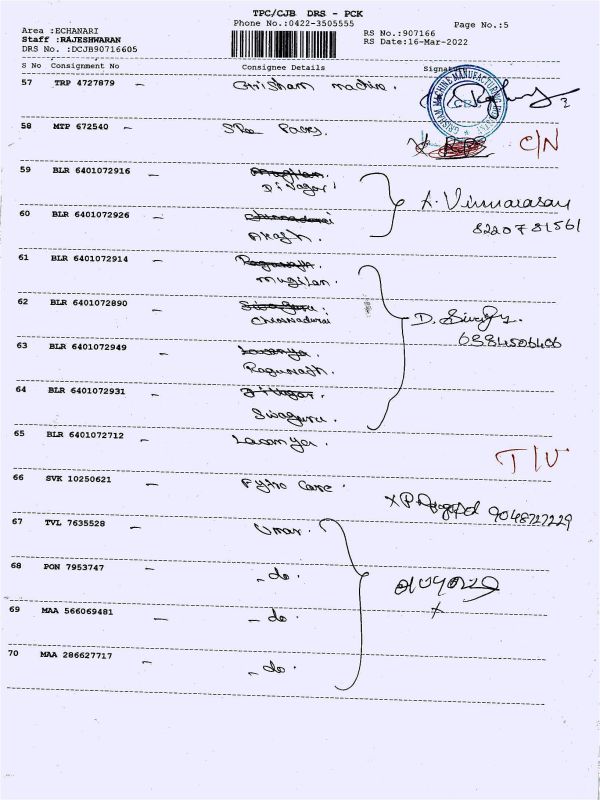 TPC/CJB DRS - PCK
Phone No.:0422-3505555
Page No.:5
Area :ECHANARI
Staff :RAJESHWARAN
DRS No. :DCJB90716605
RS No.:907166
RS Date:16-Mar-2022
S No Consignment No Consignee Details Signature
57 TRP 4727879 - Grisham machine.
58 MTP 672540 - Sree Packs C/N
59 BLR 6401072916 -
Dinagar
60 BLR 6401072926 -
Akash.
8220781561
61 BLR 6401072914 - Ragunath.
Mugilan.
62 BLR 6401072890 - Sivaguru.
Chinnadurai
D.
63 BLR 6401072949 - Lavanya
Ragunath.
64 BLR 6401072931 - Dinagar.
Sivaguru.
65 BLR 6401072712 - Lavanya.
66 SVK 10250621 - Fyno Care.
9048727229
67 TVL 7635528 -
68 PON 7953747 - - do.
69 MAA 566069481 - - do.
70 MAA 286627717 - - do.